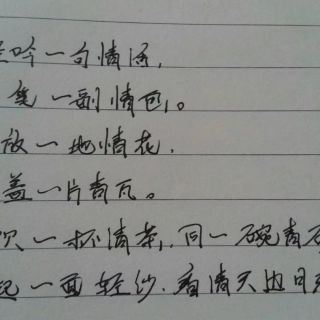 吟一句情话,
笔一副情画。
放一地情花.
盖一片青瓦。
饮一杯清茶,同一碗青
起一面轻纱.看清天边月